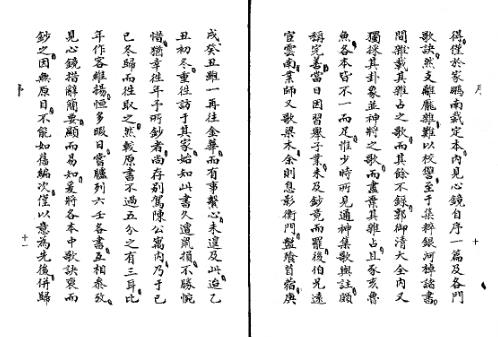 序
得僅於家鵬南裁定本內見心鏡自序一篇及各門
歌訣然支離龐雜難以校讐至于集粹銀河棹諸書
間雖載其雜占之歌而其餘不錄郭御清大全內又
獨採其卦象並神將之歌而盡棄其雜占且豕亥魯
魚各本皆不一而足惟少時所見通神集歌與註頗
稱完善當日因習舉子業未及鈔竟而罷後伯兄遠
宦雲南業師又歌梁木余則息影衡門盤飧苜蓿與
十
戌癸丑雖一再往金華而有事繫心未遑及此迨乙
丑初冬重往訪于其家始知此書久遭風損不勝惋
惜猶幸往年予所鈔者尚存別駕陳公寓內乃于己
巳冬歸而往取之然較原書不過五分之有三耳比
年作客維揚恒多暇日嘗臚列六壬各書互相參攷
見心鏡措辭簡要顯而易知爰將各本中歌訣裒而
鈔之因無原目不能如舊編次僅以意為先後併歸
十一